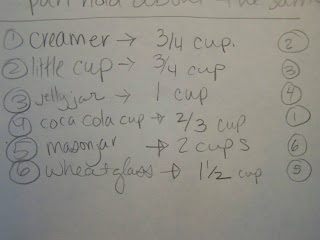 part hold about the same
① creamer → 3/4 cup. ②
② little cup → 3/4 cup ③
③ jelly jar → 1 cup ④
④ coca cola cup → 2/3 cup ①
⑤ mason jar → 2 cups ⑥
⑥ wheat glass → 1 1/2 cup ⑤